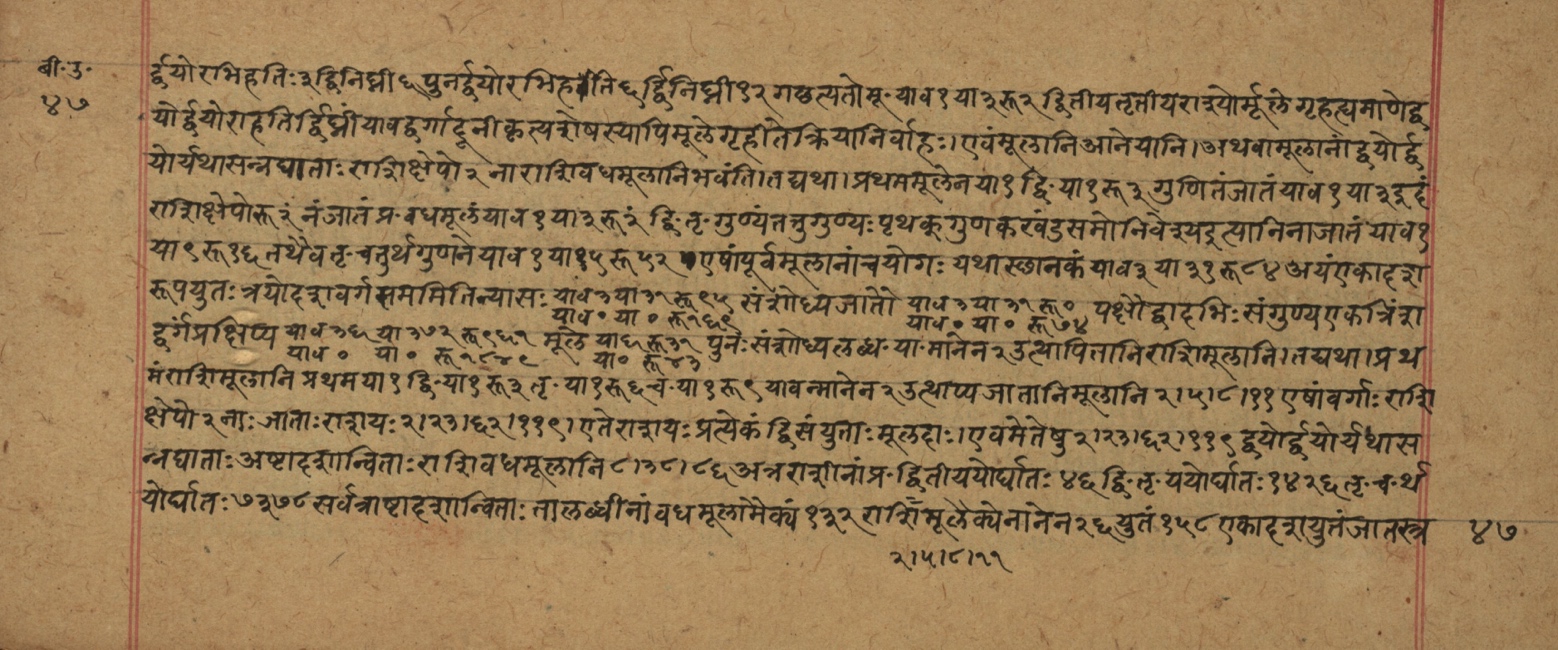 बी॰उ॰
४७
र्द्वयोरभिहतिः३द्विनिघ्नी६पुनर्द्वयोरभिहतिति६र्द्विनिघ्नी१२गछत्यतोमू॰याव१या३रू२द्वितीयतृतीयराश्योर्मूलेगृहत्यमाणेद्व
योर्द्वयोराहतिर्द्विघ्नींयावद्वर्गादूनीकृत्यशेषस्यापिमूलेगृहीतेक्रियानिर्वाहः।एवंमूलानिआनेयानि।अथवामूलानांद्वयोर्द्व
योर्यथासन्नघाताःराशिक्षेपो२नाराशिवधमूलानिभवंति।तद्यथा।प्रथममूलेनया१द्वि॰या१रू३गुणितंजातंयाव१या३इदं
राशिक्षेपोरू२ंनंजातंप्र॰वधमूलंयाव१या३रू२ंद्वि॰तृ॰गुण्यंतत्रुगुण्यःपृथक्गुणकखंडसमोनिवेश्यइत्यानिनाजातंयाव१
या९रू१६तथैवतृ॰चतुर्थगुणनेयाव१या१५रू५२एषांपूर्वमूलानांचयोगःयथास्छानकंयाव३या३१रू८४अयंएकादश
रूपयुतःत्रयोदशवर्गसममितिन्यासःयाव३या३१रू९५संशोध्यजातोयाव३या३१रू०पक्षौद्वादभिःसंगुण्यएकत्रिंश
याव०या०रू१६९ याव०या०रू७४
द्वर्गंप्रक्षिप्ययाव३६या३७२रू९६१मूलेया६रू३१पुनःसंशोध्यलब्ध॰या॰मानेन२उत्थापितानिराशिमूलानि।तद्यथा।प्रथ
याव०या०रू१८४९ या०रू४३
मंराशिमूलानिप्रथमया१द्वि॰या१रू३तृ॰या१रू६च॰या१रू९यावन्मानेन२उत्थाप्यजातानिमूलानि२।५।८।११एषांवर्गाःराशि
क्षेपो२नाःजाताःराशयः२।२३।६२।११९।एतेराशयःप्रत्येकंद्विसंयुताःमूलदाः।एवमेतेषु२।२३।६२।११९द्वयोर्द्वयोर्यथास
न्नघाताःअष्टादशान्विताःराशिवधमूलानि८।३८।८६अत्रराशीनांप्र॰द्वितीययोर्घातः४६द्वि॰तृ॰ययोर्घातः१४२६तृ॰च॰र्थ
योर्घातः७३७८सर्वत्राष्टादशान्विताःतालब्धीनांवधमूलामेक्यं१३२राशिमूलैक्येनानेन२६युतं१५८एकादशयुतंजातस्त्र ४७
२।५।८।११